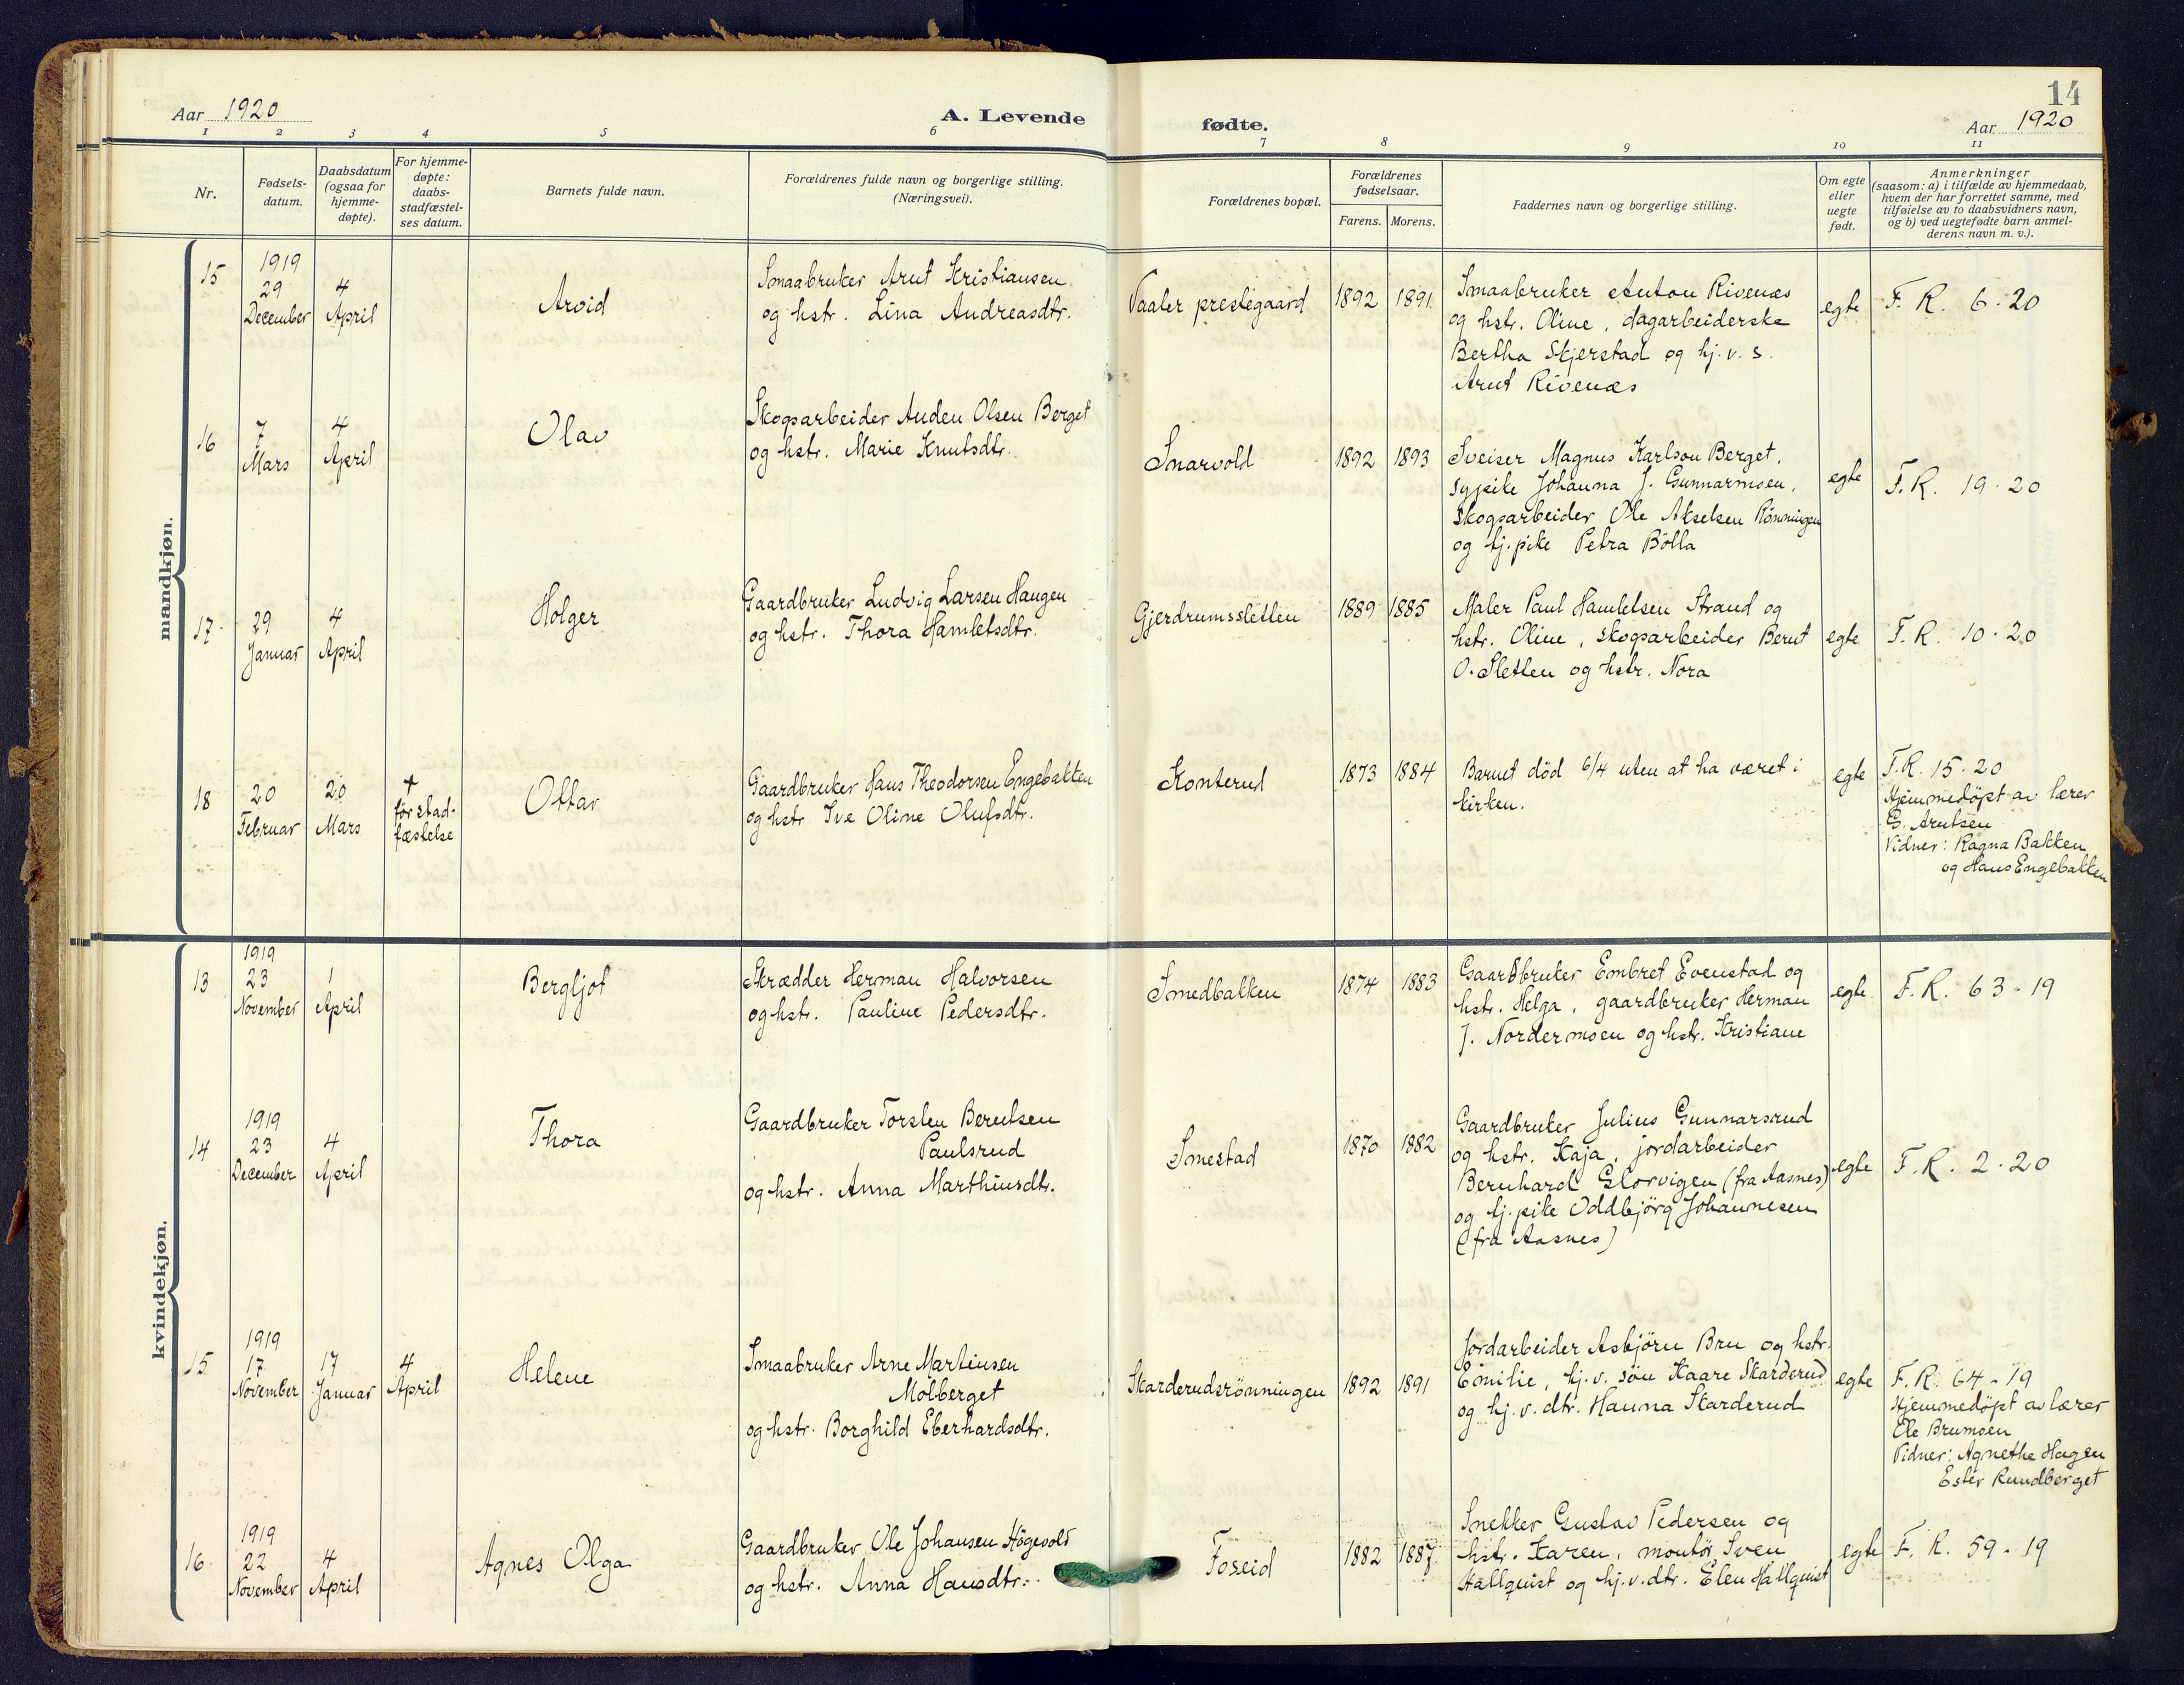 14
Aar 1920
A. Levende
fødte.
Aar 1920
1 2 3 4 5 6 7 8 9 10 11
Nr.
Fødsels-
datum.
Daabsdatum
(ogsaa for
hjemme-
døpte).
For hjemme-
døpte:
daabs-
stadfæstel-
ses datum.
Barnets fulde navn.
Forældrenes fulde navn og borgerlige stilling.
(Næringsvei).
Forældrenes bopæl.
Forældrenes
fødselsaar.
Farens. Morens.
Faddernes navn og borgerlige stilling.
Om egte
eller
uegte
født.
Anmerkninger
(saasom: a) i tilfælde av hjemmedaab,
hvem der har forrettet samme, med
tilføielse av to daabsvidners navn,
og b) ved uegtefødte barn anmel-
derens navn m. v.).
mandkjøn.
15
1919
29
December
4
April
Arvid
Smaabruker Arnt Kristiansen
og hstr. Lina Andreasdtr.
Vaaler prestegaard
1892
1891
Smaabruker Anton Rivenæs
og hstr. Oline, dagarbeiderske
Bertha Skjerstad og hj. v. s.
Arnt Rivenæs
egte
F. R. 6 - 20
16
7
Mars
4
April
Olav
Skogsarbeider Auden Olsen Berget
og hstr. Marie Knutsdtr.
Snarvold
1892
1893
Sveiser Magnus Karlson Berget,
sypike Johanna J. Gunnarmoen,
skogsarbeider Ole Akselsen Rönningen
og tj. pike Petra Bölla
egte
F. R. 19 - 20
17
29
Januar
4
April
Holger
Gaardbruker Ludvig Larsen Haugen
og hstr. Thora Hamletsdtr.
Gjerdrumssletten
1889
1885
Maler Paul Hamletsen Strand og
hstr. Oline, skogsarbeider Bernt
O. Sletten og hstr. Nora
egte
F. R. 10 - 20
18
20
Februar
20
Mars
†
før stad-
fæstelse
Ottar
Gaardbruker Hans Theodorsen Engebakken
og hstr Ive Oline Olufsdtr.
Konterud
1873
1884
Barnet död 6/4 uten at ha været i
kirken.
egte
F. R. 15 - 20
Hjemmedöpt av lærer
G. Arntsen
Vidner: Ragna Bakken
og Hans Engebakken
kvindekjøn.
13
1919
23
November
1
April
Bergljot
Skrædder Herman Halvorsen
og hstr. Pauline Pedersdtr.
Smedbakken
1874
1883
Gaardbruker Embret Evenstad og
hstr. Helga, gaardbruker Herman
J. Nordermoen og hstr. Kristiane
egte
F. R. 63 - 19
14
1919
23
December
4
April
Thora
Gaardbruker Torsten Berntsen
Paulsrud
og hstr. Anna Marthinsdtr.
Smestad
1870
1882
Gaardbruker Julius Gunnarsrud
og hstr. Kaja, jordarbeider
Bernhard Glorvigen (fra Aasnes)
og tj. pike Oddbjörg Johannesen
(fra Aasnes)
egte
F. R. 2 - 20
15
1919
17
November
17
Januar
4
April
Helene
Smaabruker Arne Martinsen
Molberget
og hstr. Borghild Eberhardsdtr.
Skarderudsrönningen
1892
1891
Jordarbeider Asbjörn Bru og hstr.
Emilie, hj. v. sön Kaare Skarderud
og hj. v. dtr. Hanna Skarderud
egte
F. R. 64 - 19
Hjemmedöpt av lærer
Ole Brumoen
Vidner: Agnethe Hagen
Ester Rundberget
16
1919
22
November
4
April
Agnes Olga
Gaardbruker Ole Johansen Högevold
og hstr. Anna Hansdtr.
Foseid
1882
1887
Snekker Gustav Pedersen og
hstr. Karen, montör Sven
Hallquist og hj. v. dtr. Elen Hallquist
egte
F. R. 59 - 19